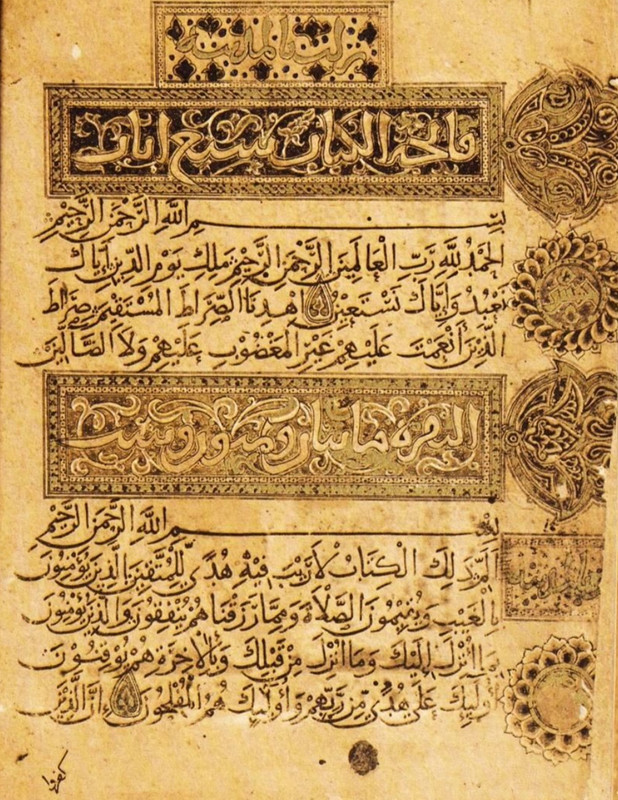 نزلت بالمدينة
فاتحة الكتاب سبع ايات
بِسْمِ اللهِ الرَّحْمَنِ الرَّحِيْمِ
الْحَمْدُ لِلّهِ رَبِّ الْعَالَمِيْنَ الرَّحْمَنِ الرَّحِيْمِ مَلِكِ يَوْمِ الدِّيْنِ إِيَّاكَ
نَعْبُدُ وَإِيَّاكَ نَسْتَعِيْنُ اهْدِنَا الصِّرَاطَ الْمُسْتَقِيْمَ صِرَاطَ
الَّذِيْنَ أَنْعَمْتَ عَلَيْهِمْ غَيْرِ الْمَغْضُوْبِ عَلَيْهِمْ وَلاَ الضَّالِّيْنَ
البقرة مايتان وثمنون وست
بِسْمِ اللهِ الرَّحْمَنِ الرَّحِيْمِ
الَمّ ذَلِكَ الْكِتَابُ لاَ رَيْبَ فِيْهِ هُدًى لِّلْمُتَّقِيْنَ الَّذِيْنَ يُؤْمِنُوْنَ
بِالْغَيْبِ وَيُقِيْمُوْنَ الصَّلاَةَ وَمِمَّا رَزَقْنَاهُمْ يُنْفِقُوْنَ وَالَّذِيْنَ يُؤْمِنُوْنَ
بِمَا أُنْزِلَ إِلَيْكَ وَمَا أُنْزِلَ مِنْ قَبْلِكَ وَبِالآخِرَةِ هُمْ يُوْقِنُوْنَ
أُوْلَئِكَ عَلَى هُدًى مِّنْ رَبِّهِمْ وَأُوْلَئِكَ هُمُ الْمُفْلِحُوْنَ إِنَّ الَّذِيْنَ
كفروا